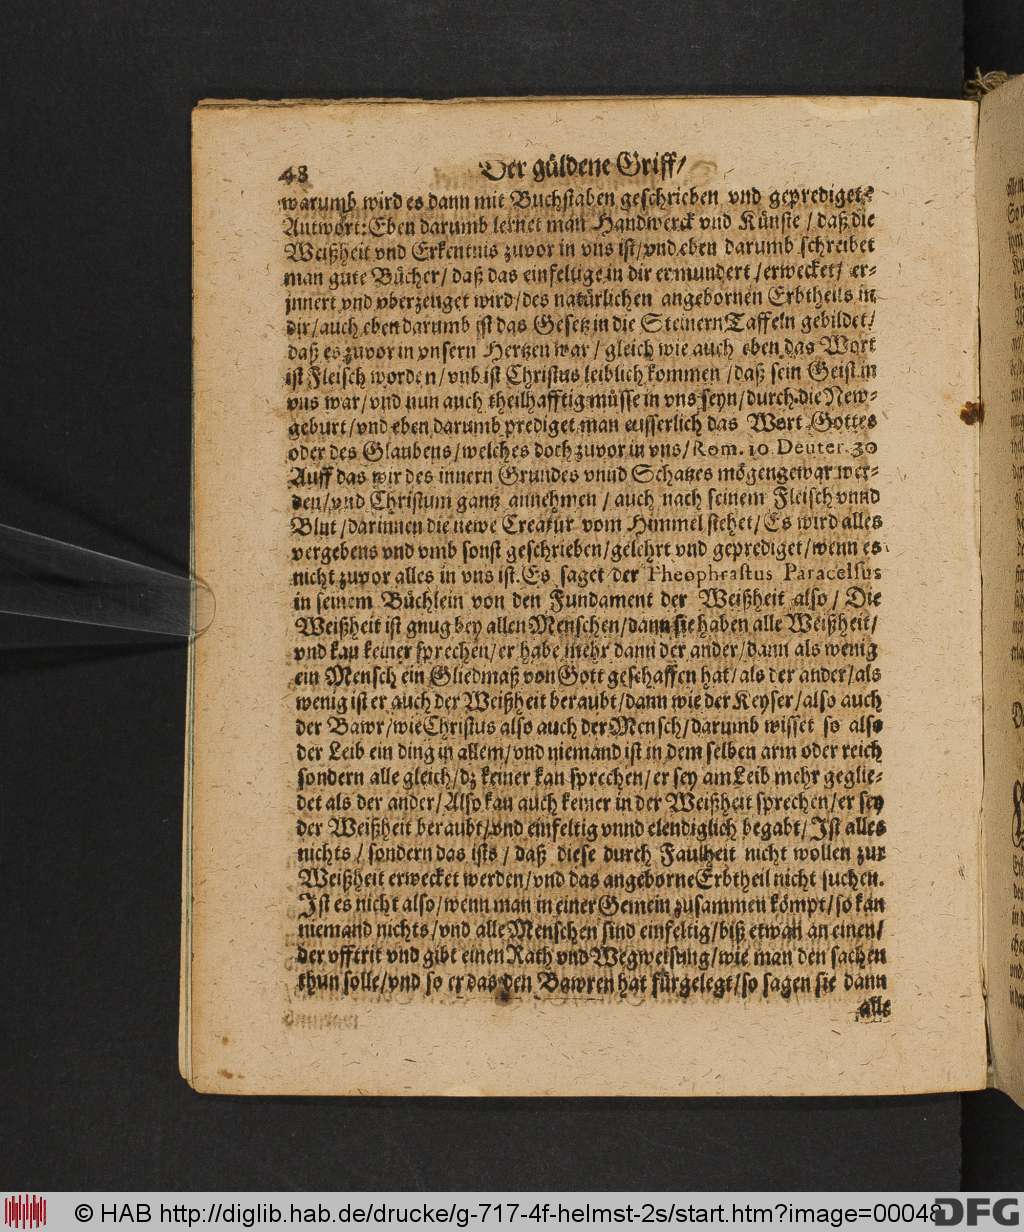 48 Der güldene Griff/
warumb wird es dann mit Buchstaben geschrieben vnd geprediget?
Antwort: Eben darumb lernet man Handwerck vnd Künste / daß die
Weißheit vnd Erkentnis zuvor in vns ist/vnd eben darumb schreibet
man gute Bücher/ daß das einfeltige in dir ermundert/erwecket/ er-
innert vnd vberzeuget wird/des natürlichen angebornen Erbtheils in
dir/auch eben darumb ist das Gesetz in die Steinern Taffeln gebildet/
daß es zuvor in vnsern Hertzen war/gleich wie auch eben das Wort
ist Fleisch worden/vnd ist Christus leiblich kommen /daß sein Geist in
vns war/vnd nun auch theilhafftig müsse in vns seyn/durch die New-
geburt/vnd eben darumb prediget man eusserlich das Wort Gottes
oder des Glaubens/welches doch zuvor in vns/Rom. 10 Deuter. 30
Auff das wir des innern Grundes vnnd Schatzes mögen gewar wer-
den/vnd Christum gantz annehmen / auch nach seinem Fleisch vnnd
Blut/darinnen die newe Creatur vom Himmel stehet/Es wird alles
vergebens vnd vmb sonst geschrieben/gelehrt vnd geprediget/wenn es
nicht zuvor alles in vns ist. Es saget der Theophrastus Paracelsus
in seinem Büchlein von den Fundament der Weißheit also/ Die
Weißheit ist gnug bey allen Menschen/dann sie haben alle Weißheit/
vnd kan keiner sprechen/er habe mehr dann der ander/dann als wenig
ein Mensch ein Gliedmaß von Gott geschaffen hat/als der ander/als
wenig ist er auch der Weißheit beraubt/dann wie der Keyser/also auch
der Bawr/wie Christus also auch der Mensch/darumb wisset so also
der Leib ein ding in allem/vnd niemand ist in dem selben arm oder reich
sondern alle gleich/dz keiner kan sprechen/er sey am Leib mehr geglie-
det als der ander/Also kan auch keiner in der Weißheit sprechen/er sey
der Weißheit beraubt/vnd einfeltig vnnd elendiglich begabt/Ist alles
nichts / sondern das ists / daß diese durch Faulheit nicht wollen zur
Weißheit erwecket werden/vnd das angeborne Erbtheil nicht suchen.
Ist es nicht also/wenn man in einer Gemein zusammen kömpt/so kan
niemand nichts/vnd alle Menschen sind einfeltig/biß etwan an einen/
der vfftrit vnd gibt einen Rath vnd Wegweisung/wie man den sachen
thun solle/vnd so er das den Bawren hat fürgelegt/so sagen sie dann
alle
© HAB http://diglib.hab.de/drucke/g-717-4f-helmst-2s/start.htm?image=00048
DFG